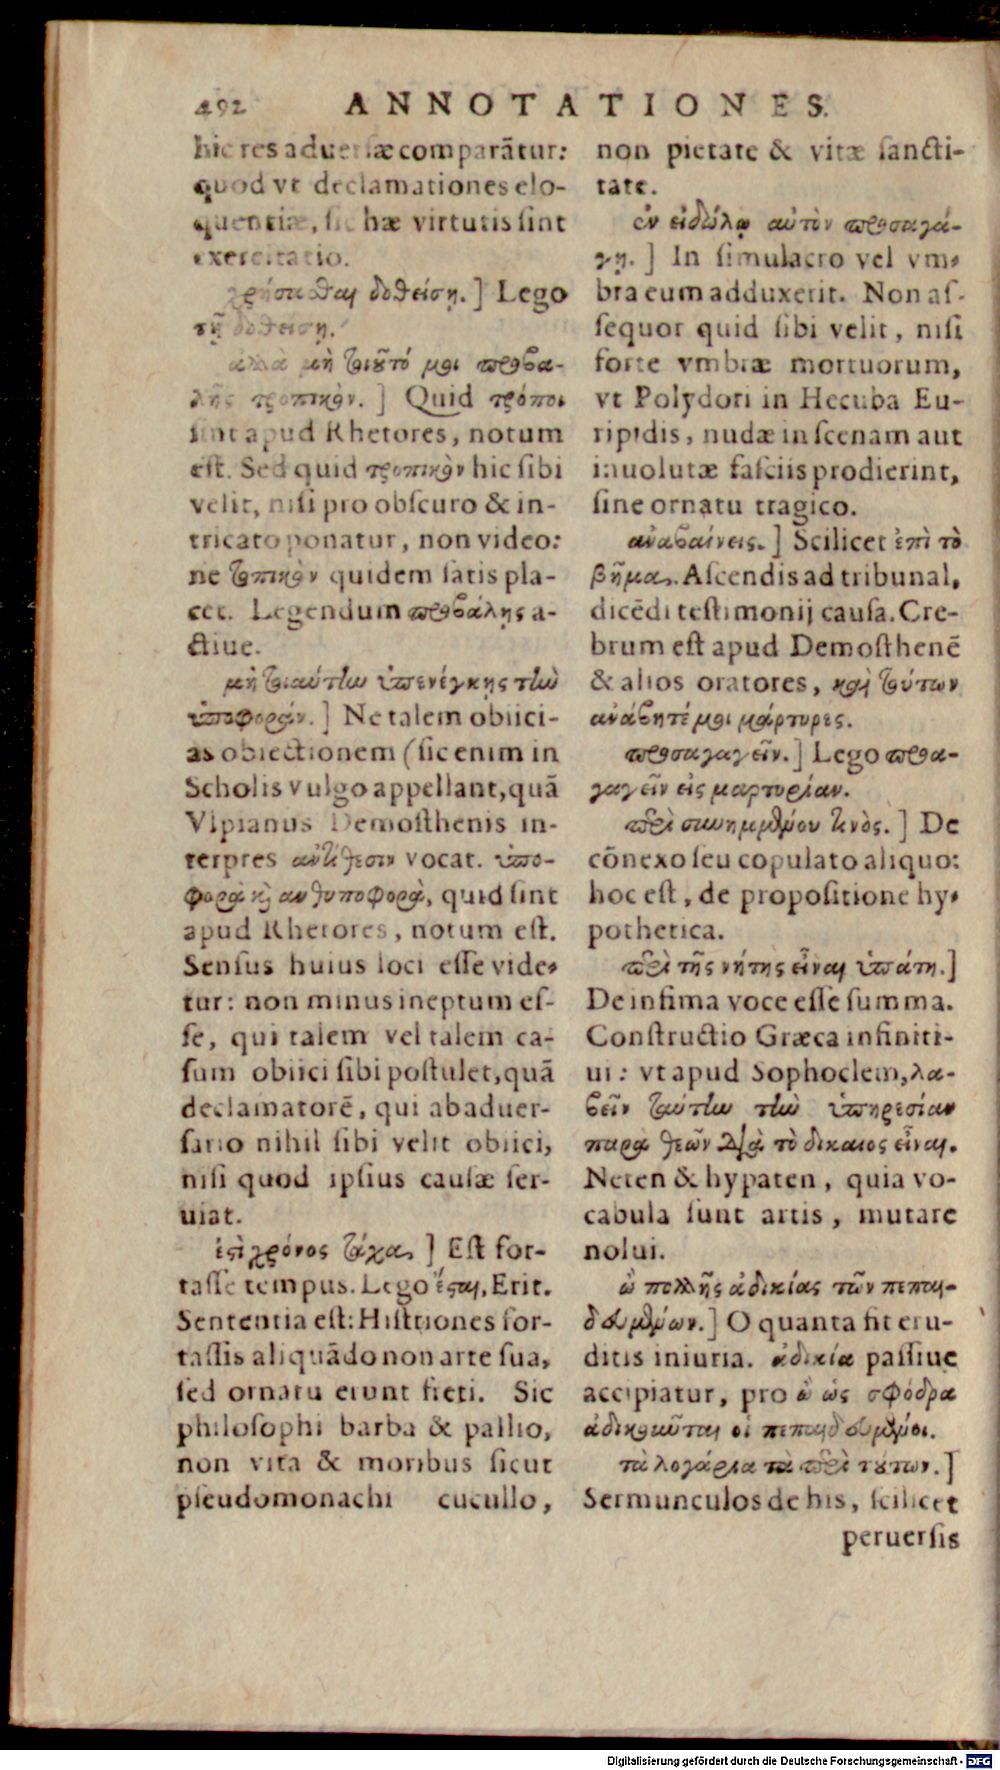 492 ANNOTATIONES.
hic res aduersæ comparãtur:
quod vt declamationes elo-
quentiæ, sic hæ virtutis sint
exercitatio.
χρήσασθαι δοθείσῃ.] Lego
τῇ δοθείσῃ.
ἀλλὰ μὴ τοιοῦτό μοι προβα-
λῇς τροπικὸν.] Quid τρόποι
sint apud Rhetores, notum
est. Sed quid τροπικὸν hic sibi
velit, nisi pro obscuro & in-
tricato ponatur, non video:
ne τοπικὸν quidem satis pla-
cet. Legendum προβάλῃς a-
ctiue.
μὴ τοιαύτην ὑπενέγκῃς τὴν
ὑποφορὰν.] Ne talem obiici-
as obiectionem (sic enim in
Scholis vulgo appellant, quã
Vlpianus Demosthenis in-
terpres ἀντίθεσιν vocat. ὑπο-
φορὰ καὶ ἀνθυποφορὰ, quid sint
apud Rhetores, notum est.
Sensus huius loci esse vide-
tur: non minus ineptum es-
se, qui talem vel talem ca-
sum obiici sibi postulet, quã
declamatorẽ, qui ab aduer-
sario nihil sibi velit obiici,
nisi quod ipsius causæ ser-
uiat.
ἐστὶ χρόνος τάχα.] Est for-
tasse tempus. Lego ἔσται, Erit.
Sententia est: Histriones for-
tassis aliquãdo non arte sua,
sed ornatu erunt freti. Sic
philosophi barba & pallio,
non vita & moribus sicut
pseudomonachi cucullo,
non pietate & vitæ sancti-
tate.
ἐν εἰδώλῳ αὐτὸν προσαγά-
γῃ.] In simulacro vel vm-
bra eum adduxerit. Non as-
sequor quid sibi velit, nisi
forte vmbræ mortuorum,
vt Polydori in Hecuba Eu-
ripidis, nudæ in scenam aut
inuolutæ fasciis prodierint,
sine ornatu tragico.
ἀναβαίνεις.] Scilicet ἐπὶ τὸ
βῆμα. Ascendis ad tribunal,
dicẽdi testimonij causa. Cre-
brum est apud Demosthenẽ
& alios oratores, καὶ τούτων
ἀνάβητέ μοι μάρτυρες.
προσαγαγεῖν.] Lego προα-
γαγεῖν εἰς μαρτυρίαν.
περὶ συνημμένου τινὸς.] De
cõnexo seu copulato aliquo:
hoc est, de propositione hy-
pothetica.
περὶ τῆς νήτης εἶναι ὑπάτη.]
De infima voce esse summa.
Constructio Græca infiniti-
ui: vt apud Sophoclem, λα-
βεῖν ταύτην τὴν ὑπηρεσίαν
παρὰ θεῶν διὰ τὸ δίκαιος εἶναι.
Neten & hypaten, quia vo-
cabula sunt artis, mutare
nolui.
ὢ πολλῆς ἀδικίας τῶν πεπαι-
δευμένων.] O quanta fit eru-
ditis iniuria. ἀδικία passiue
accipiatur, pro ὢ ὡς σφόδρα
ἀδικοῦνται οἱ πεπαιδευμένοι.
τὰ λογάρια τὰ περὶ τούτων.]
Sermunculos de his, scilicet
peruersis
Digitalisierung gefördert durch die Deutsche Forschungsgemeinschaft - DFG